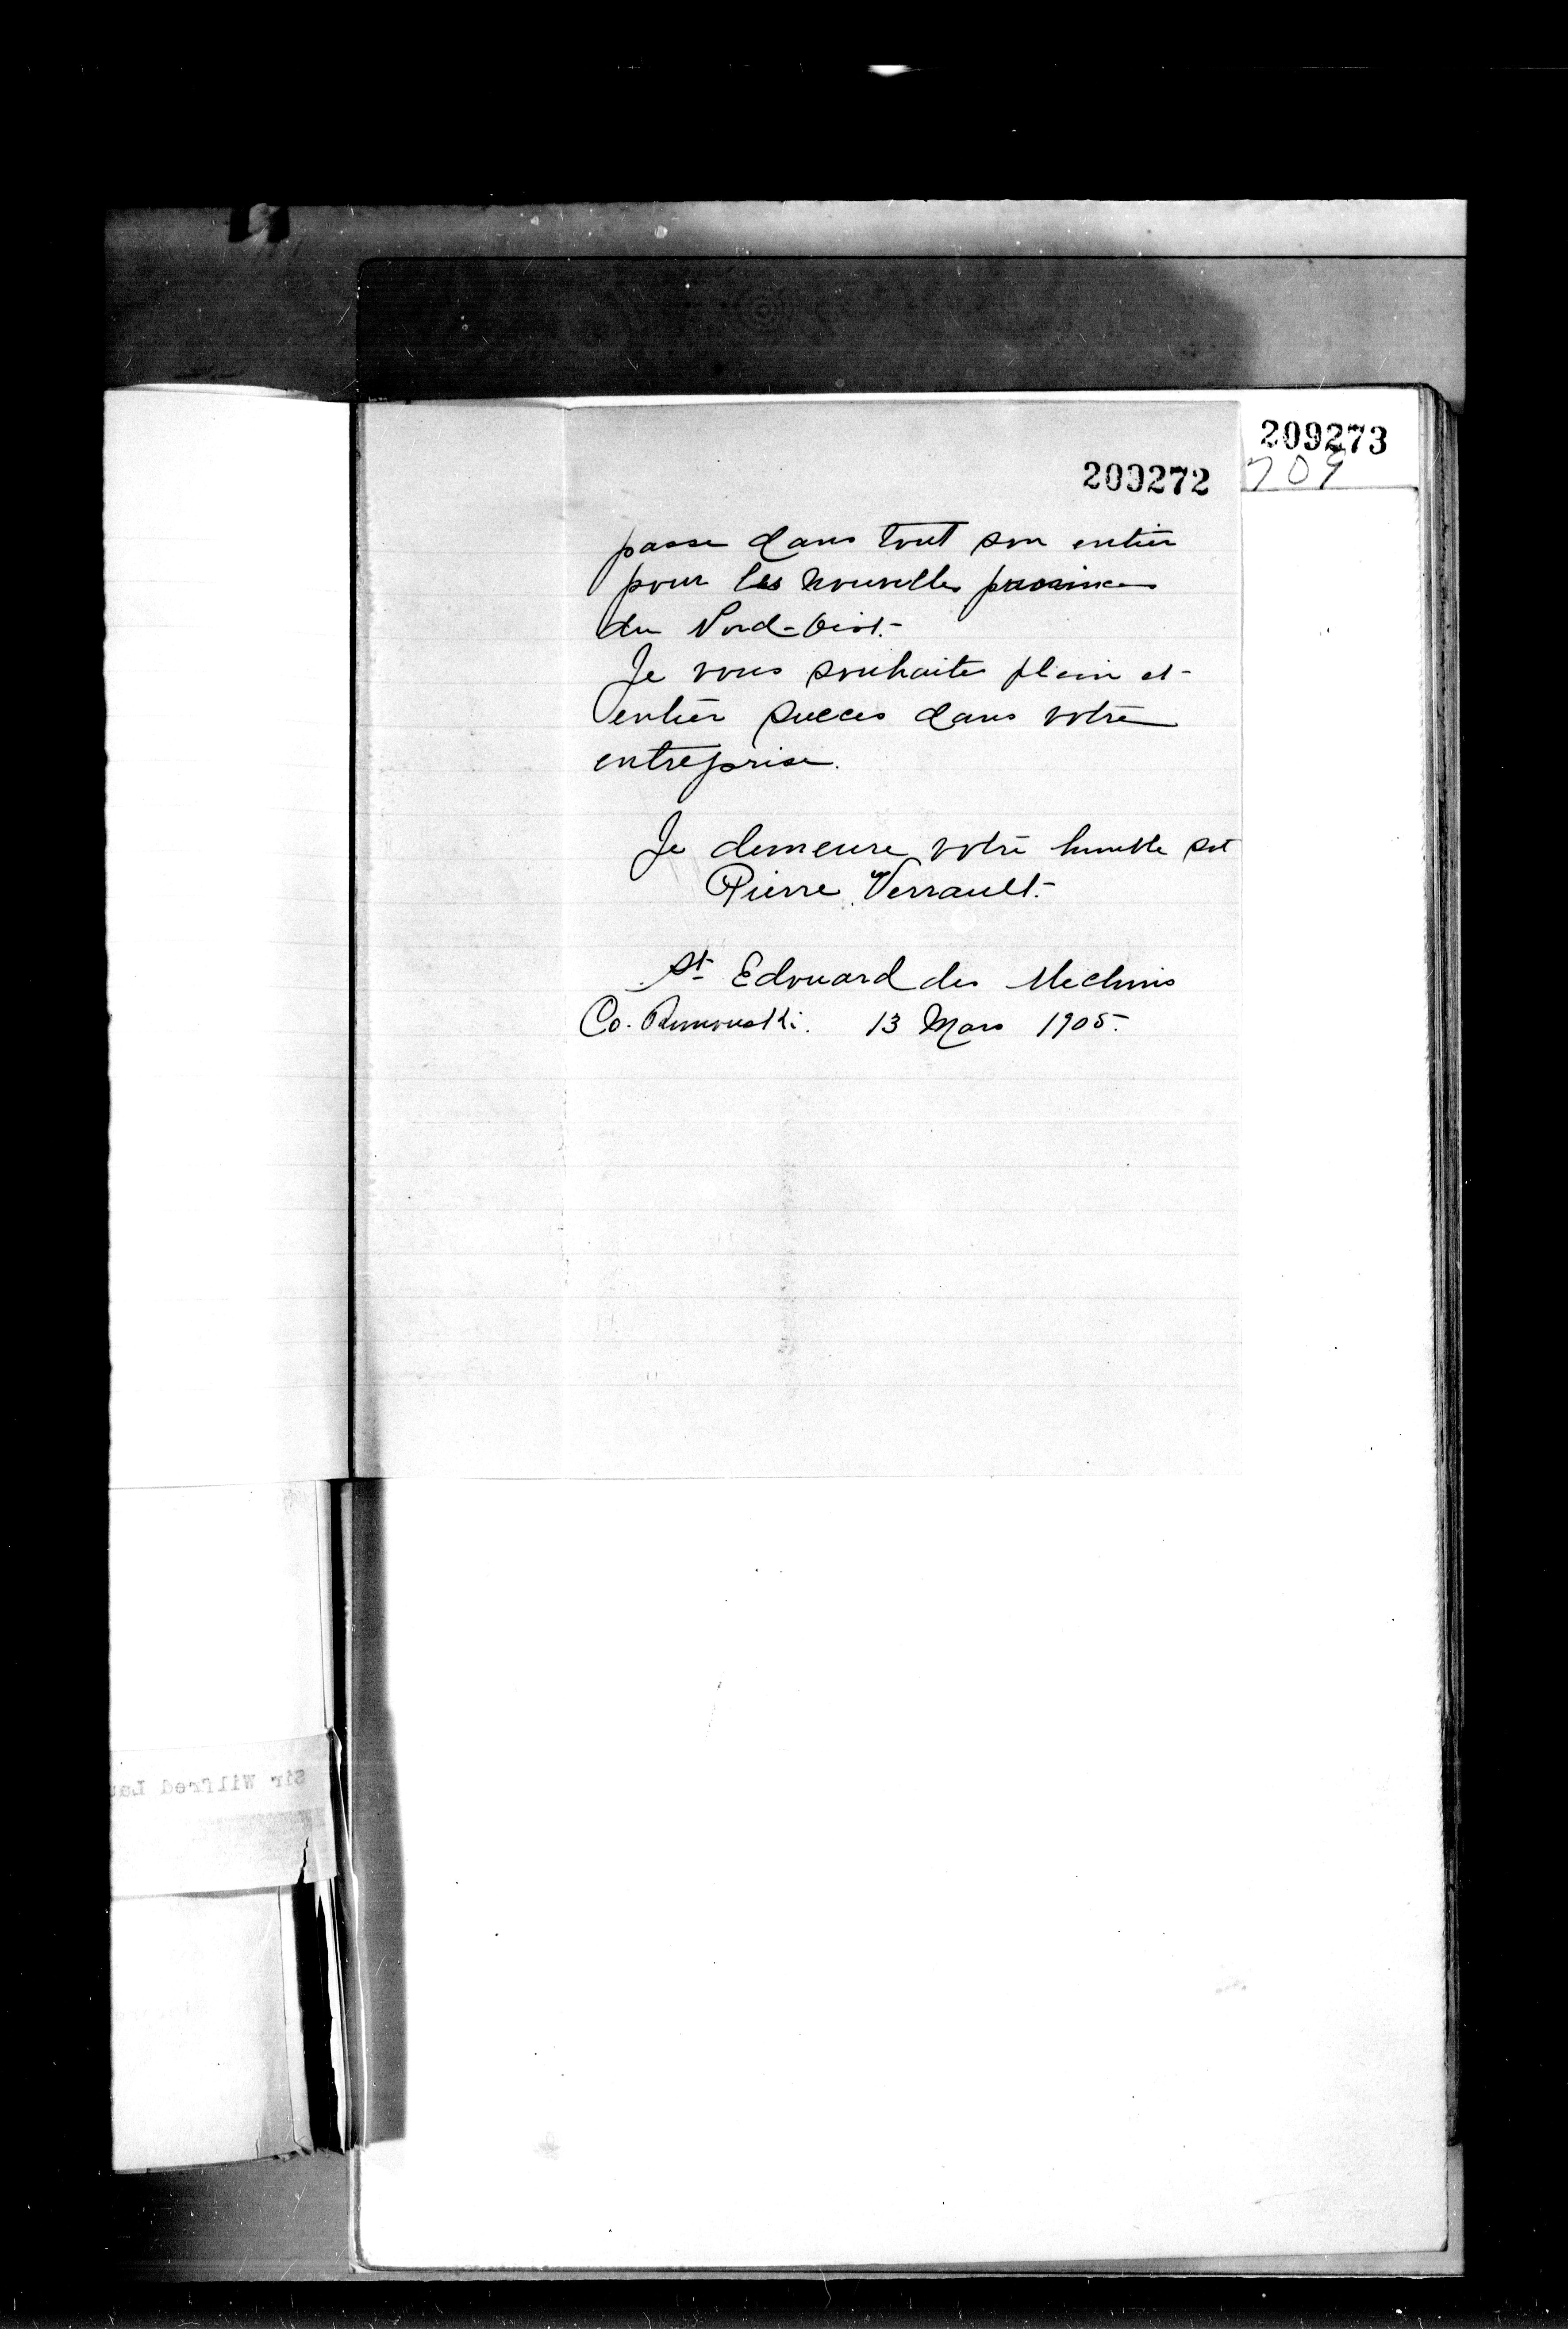 209273
709
209272
passe dans tout son entier
pour les nouvelles provinces
du Nord-Oest.-
Je vous souhaite plein et
entier succes dans votre
entreprise.
Je demeure votre humble svt
Pierre Verrault.-
St Edouard des Mechins
Co. Rimouski. 13 Mars 1905.
Sir Wilfred Lau